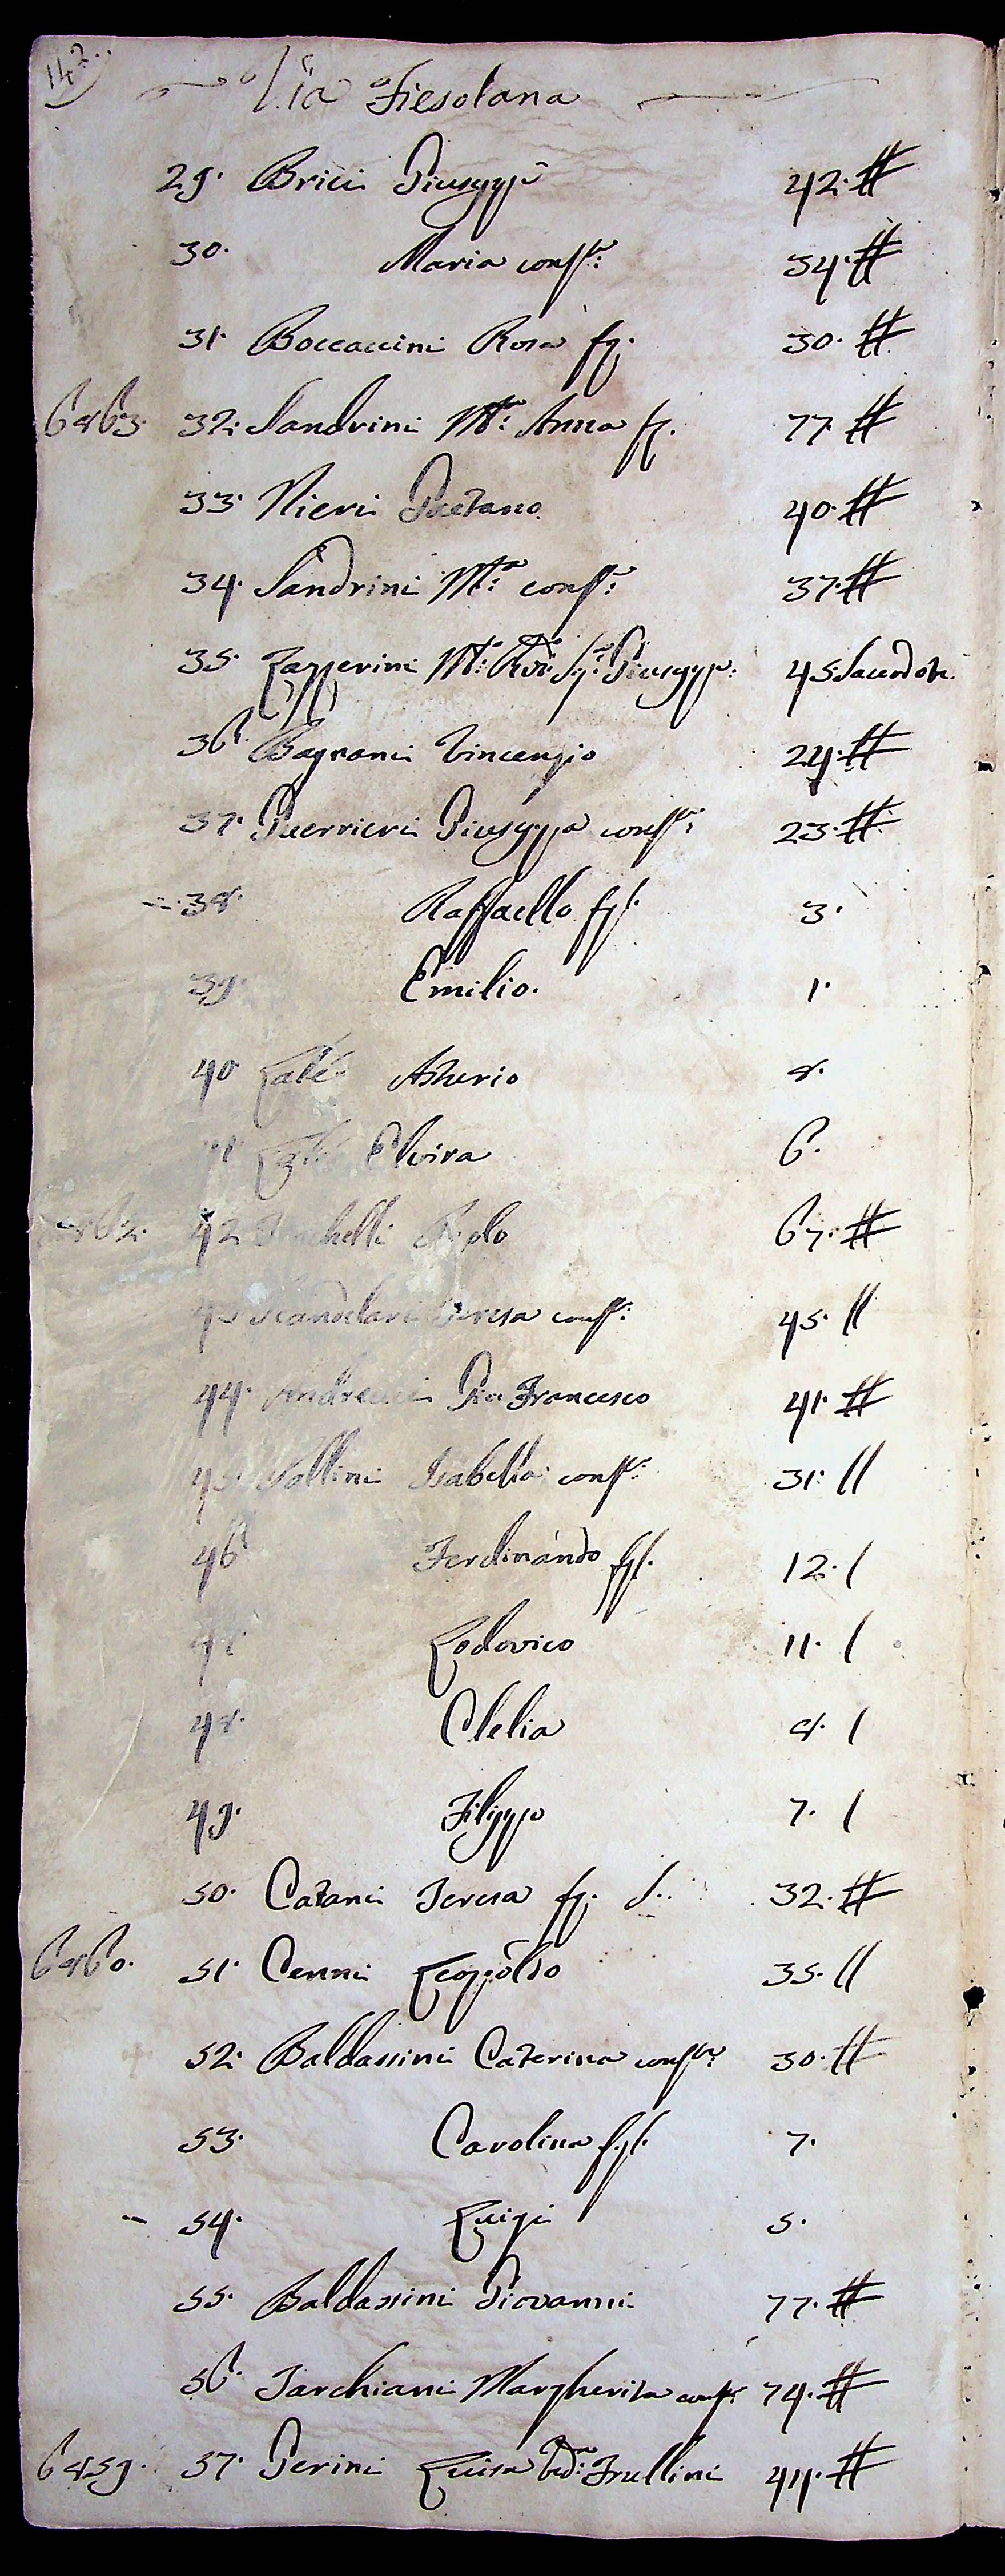 142.
Via Fiesolana
29. Bricci Giuseppe 42.
30. Maria conss.e 34.
31. Boccaccini Rosa fi. 30.
6863. 32. Sandrini M.a Anna fi. 77.
33. Nieri Gaetano 40.
34. Sandrini M.a conss.e 37.
35. Zapperini M.to Rdo. Giuseppe. 45. Sacerdote.
36. Bagnani Vincenzio 24.
37. Guerrieri Giuseppa conss.e 23.
38. Raffaello figl. 3.
39. Emilio. 1.
40 Asterio 8.
41 Elvira 6.
42. Paolo 67.
43 Teresa conss.e 45. //
44. Andreucci Gio Francesco 41.
45. Isabella conss.e 31. //
46 Ferdinando figl. 12. /
47. Lodovico 11. /
48. Clelia 8. /
49. Filippo 7. /
50. Catani Teresa fi. S. 32.
6860. 51. Cenni Leopoldo 35. //
52. Baldassini Caterina conss.e 30.
53. Carolina figl. 7.
54. Luigi 5.
55. Baldassini Giovanni 77.
56. Tarchiani Margherita conss.e 74.
6859. 57. Perini Luisa Ved.a Frullini 44.